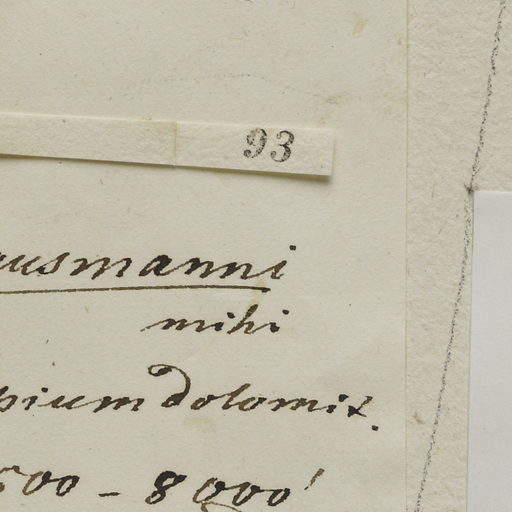 93
ausmanni
mihi
pium dolomit.
500 - 8000'